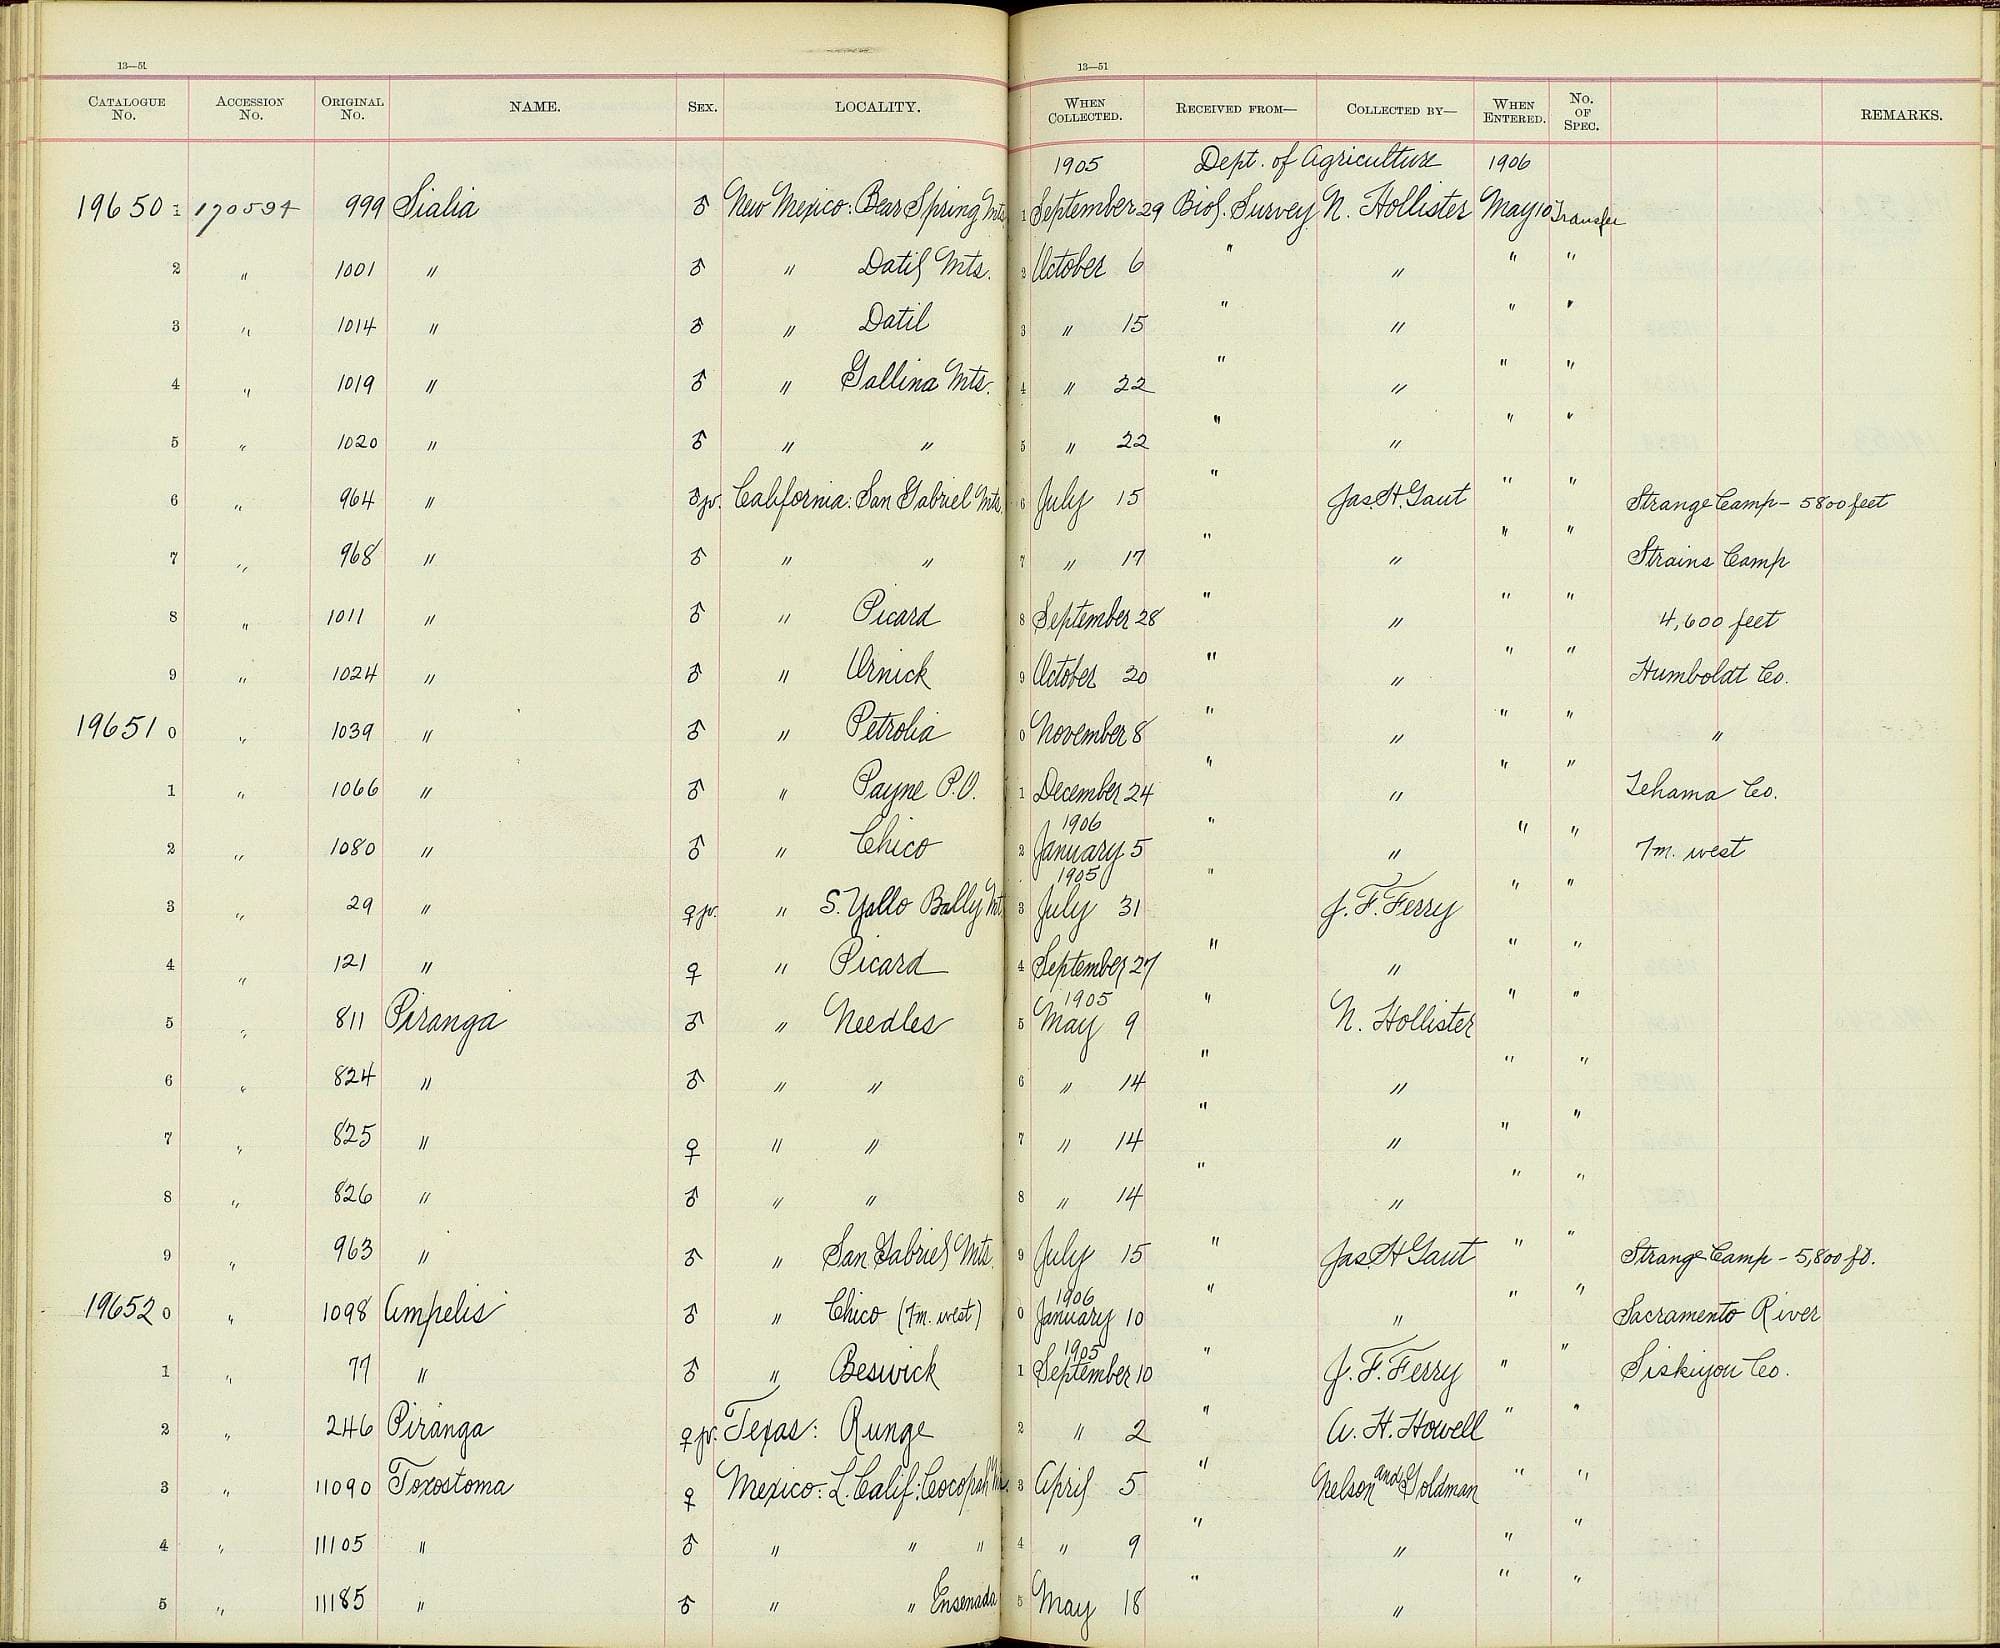 13—51 13—51
CATALOGUE No. ACCESSION No. ORIGINAL No. NAME. SEX. LOCALITY. WHEN COLLECTED. RECEIVED FROM— COLLECTED BY— WHEN ENTERED. No. OF SPEC. REMARKS.
1905 Dept. of Agriculture 1906
19650 1 170594 999 Sialia ♂ New Mexico: Bear Spring Mts 1 September 29 Biol. Survey N. Hollister May 10 Transfer
2 " 1001 " ♂ " Datil Mts. 2 October 6 " " " "
3 " 1014 " ♂ " Datil 3 " 15 " " " "
4 " 1019 " ♂ " Gallina Mts. 4 " 22 " " " "
5 " 1020 " ♂ " " 5 " 22 " " " "
6 " 964 " ♂ jv. California: San Gabriel Mts. 6 July 15 " Jas. H. Gaut " " Strange Camp - 5800 feet
7 " 968 " ♂ " " 7 " 17 " " " " Strains Camp
8 " 1011 " ♂ " Picard 8 September 28 " " " " 4,600 feet
9 " 1024 " ♂ " Ornick 9 October 20 " " " " Humboldt Co.
19651 0 " 1039 " ♂ " Petrolia 0 November 8 " " " " "
1 " 1066 " ♂ " Payne P.O. 1 December 24 " " " " Tehama Co.
1906
2 " 1080 " ♂ " Chico 2 January 5 " " " " 7m. west
1905
3 " 29 " ♀ jv. " S. Yallo Bally Mt 3 July 31 " J. F. Ferry " "
4 " 121 " ♀ " Picard 4 September 27 " " " "
1905
5 " 811 Piranga ♂ " Needles 5 May 9 " N. Hollister " "
6 " 824 " ♂ " " 6 " 14 " " " "
7 " 825 " ♀ " " 7 " 14 " " " "
8 " 826 " ♂ " " 8 " 14 " " " "
9 " 963 " ♂ " San Gabriel Mts. 9 July 15 " Jas. H Gaut " " Strange Camp - 5,800 ft.
1906
19652 0 " 1098 Ampelis ♂ " Chico (7m. west) 0 January 10 " " " " Sacramento River
1905
1 " 77 " ♂ " Beswick 1 September 10 " J. F. Ferry " " Siskiyou Co.
2 " 246 Piranga ♀ jv. Texas: Runge 2 " 2 " A. H. Howell " "
3 " 11090 Toxostoma ♀ Mexico: L. Calif: Cocopah Mts. 3 April 5 " Nelson and Goldman " "
4 " 11105 " ♂ " " " 4 " 9 " " " "
5 " 11185 " ♂ " " Ensenada 5 May 18 " " " "